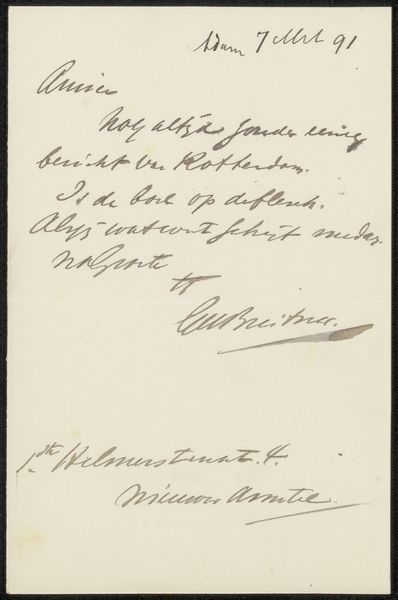 Adam 7 Mrt 91
Amice
Nog altijd zonder eenig
bericht van Rotterdam.
Is de boel op de flesch.
Als je wat weet schrijf
na Groete
tt
GHBreitner.
1ste Helmerstraat. 4.
Nieuwer Amstel